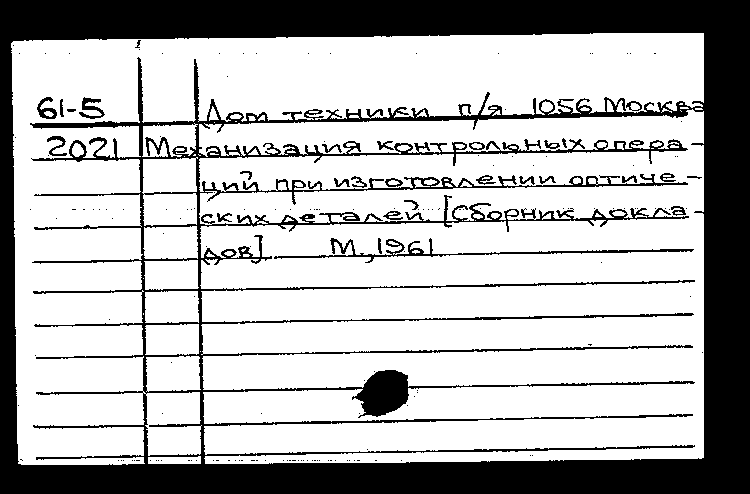 61-5 Дом техники п/я 1056 Москва
2021 Механизация контрольных опера-
ций при изготовлении оптиче-
ских деталей. [Сборник докла-
дов] М., 1961